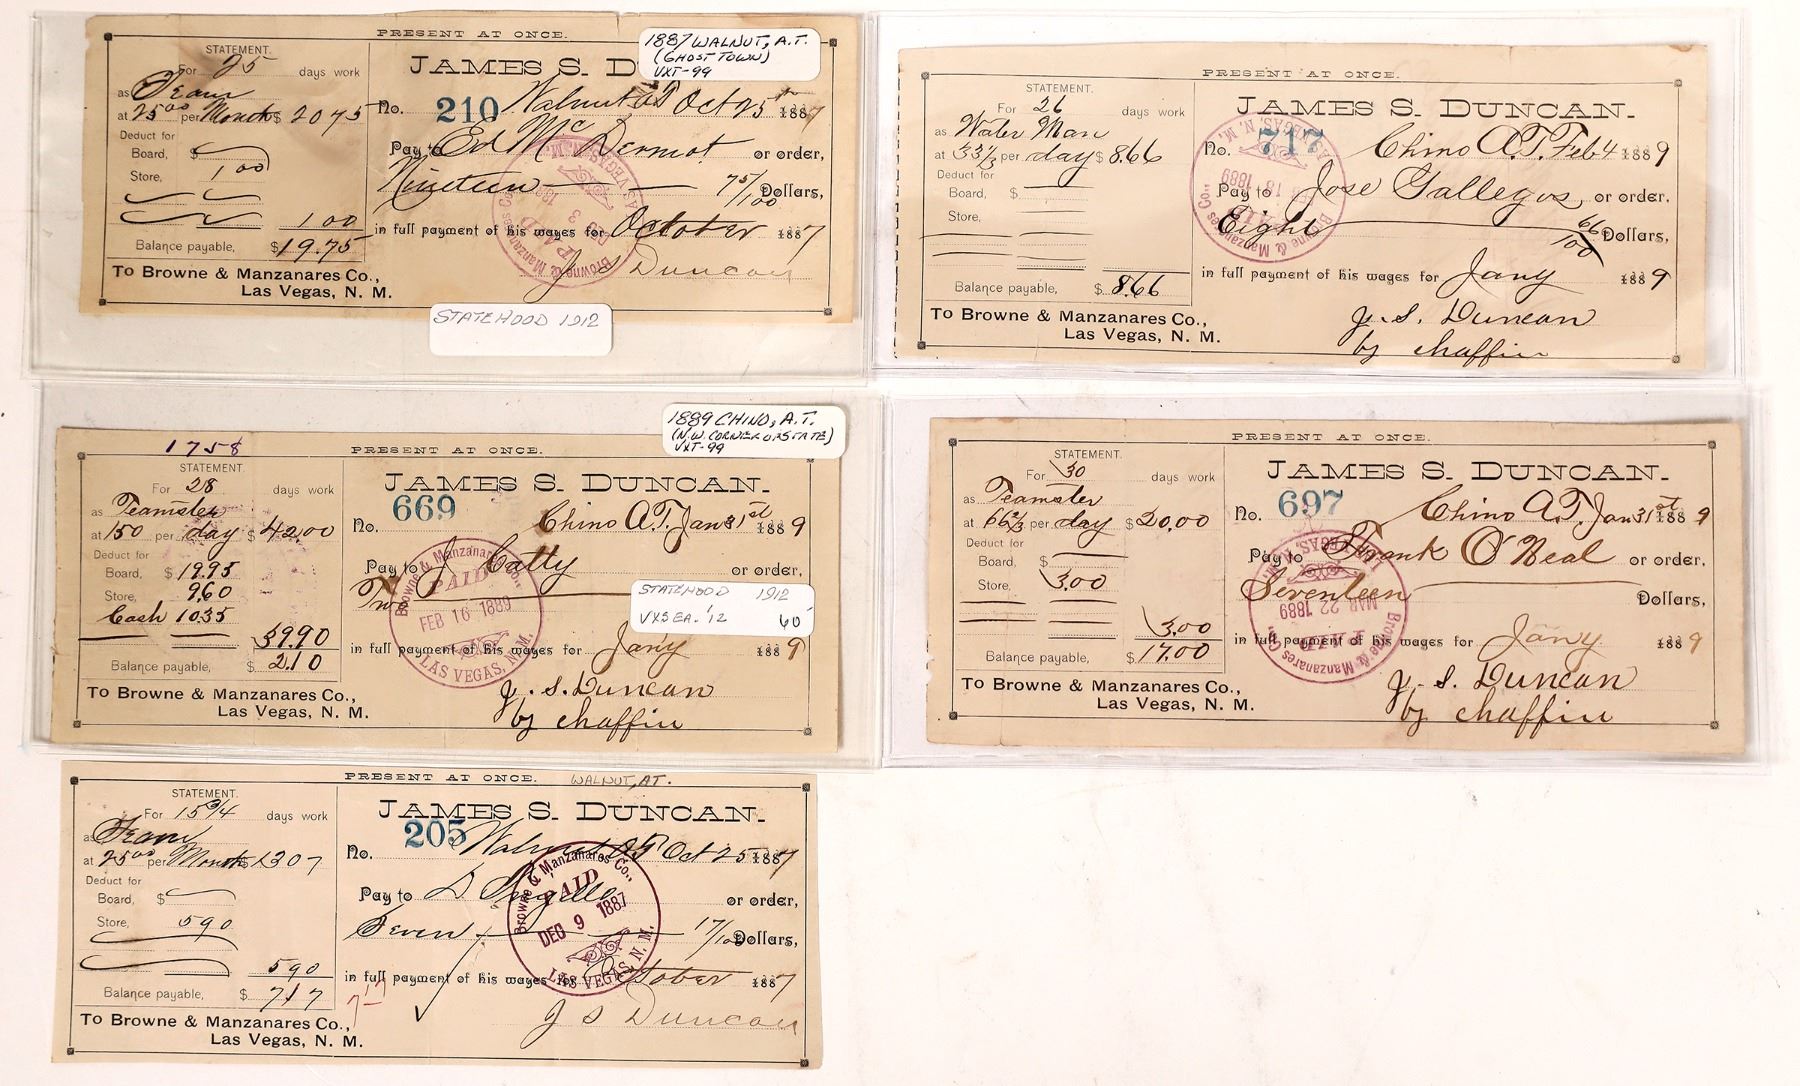 PRESENT AT ONCE.
STATEMENT.
For 25 days work
as Team
at 25 00 per Month $ 20 75
Deduct for
Board, $
Store, 1 00
1.00
Balance payable, $19.75
To Browne & Manzanares Co.,
Las Vegas, N. M.
JAMES S. D
No. 210 Walnut AT Oct 25th 1887
Pay to Ed McDermot or order,
Nineteen 75/100 Dollars,
in full payment of his wages for October 1887
J S Duncan
Browne & Manzanares Co.,
PAID
LAS VEGAS, N. M.
1887 WALNUT, A.T.
(GHOST TOWN)
VXT-99
STATEHOOD 1912
PRESENT AT ONCE.
STATEMENT.
For 26 days work
as Water Man
at 33 1/3 per day $ 8.66
Deduct for
Board, $
Store,
Balance payable, $ 8.66
To Browne & Manzanares Co.,
Las Vegas, N. M.
JAMES S. DUNCAN.
No. 717 Chino A.T. Feb 4 1889
Pay to Jose Gallegos or order,
Eight 66/100 Dollars,
in full payment of his wages for Jany 1889
J. S. Duncan
by Chaffin
Browne & Manzanares Co.,
18 1889
VEGAS, N. M.
1758
PRESENT AT ONCE.
STATEMENT.
For 28 days work
as Teamster
at 150 per day $ 42.00
Deduct for
Board, $ 19.95
Store, 9.60
Cash 10.35
39.90
Balance payable, $ 2.10
To Browne & Manzanares Co.,
Las Vegas, N. M.
JAMES S. DUNCAN.
No. 669 Chino A.T. Jan 31st 1889
Pay to J Catty or order,
Two
in full payment of his wages for Jany 1889
J. S. Duncan
by Chaffin
Browne & Manzanares Co.,
PAID
FEB 16 1889
LAS VEGAS, N. M.
1889 CHINO, A.T.
(N.W. CORNER OF STATE)
VXT-99
STATEHOOD 1912
VXSEA. '12 60
PRESENT AT ONCE.
STATEMENT.
For 30 days work
as Teamster
at 66 2/3 per day $ 20.00
Deduct for
Board, $
Store, 3.00
3.00
Balance payable, $ 17.00
To Browne & Manzanares Co.,
Las Vegas, N. M.
JAMES S. DUNCAN.
No. 697 Chino A.T. Jan 31st 1889
Pay to Frank O'Neal or order,
Seventeen Dollars,
in full payment of his wages for Jany 1889
J. S. Duncan
by Chaffin
Browne & Manzanares Co.,
PAID
MAR 22 1889
LAS VEGAS, N. M.
PRESENT AT ONCE. WALNUT, AT.
STATEMENT.
For 15 3/4 days work
as Team
at 25 00 per Month $ 1307
Deduct for
Board, $
Store, 590
590
Balance payable, $ 717
To Browne & Manzanares Co.,
Las Vegas, N. M.
JAMES S. DUNCAN.
No. 205 Walnut AT Oct 25 1887
Pay to D or order,
Seven 17/100 Dollars,
in full payment of his wages for October 1887
J S Duncan
Browne & Manzanares Co.,
PAID
DEC 9 1887
LAS VEGAS, N. M.